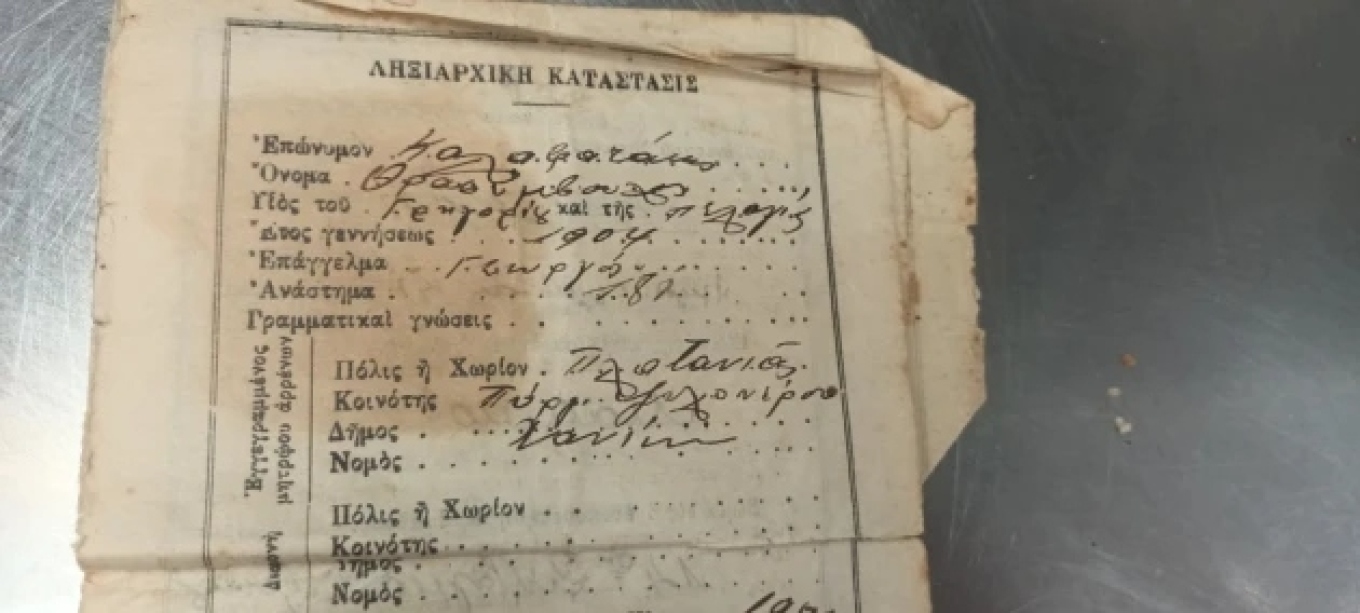 ΛΗΞΙΑΡΧΙΚΗ ΚΑΤΑΣΤΑΣΙΣ
Ἐπώνυμον Καλαφατάκης
Ὄνομα . Θρασύβουλος
Υἱὸς τοῦ Γρηγορίου καὶ τῆς . Πελαγίς
Ἔτος γεννήσεως 1904
Ἐπάγγελμα Γεωργός
Ἀνάστημα . 1.81
Γραμματικαὶ γνώσεις .
Ἐγγεγραμμένος
μητρῷον ἀρρένων
Πόλις ἢ Χωρίον . Πλατανιάς
Κοινότης
Δῆμος . Χανίων
Νομὸς .
Πόλις ἢ Χωρίον .
Κοινότης
Δῆμος
Νομὸς .